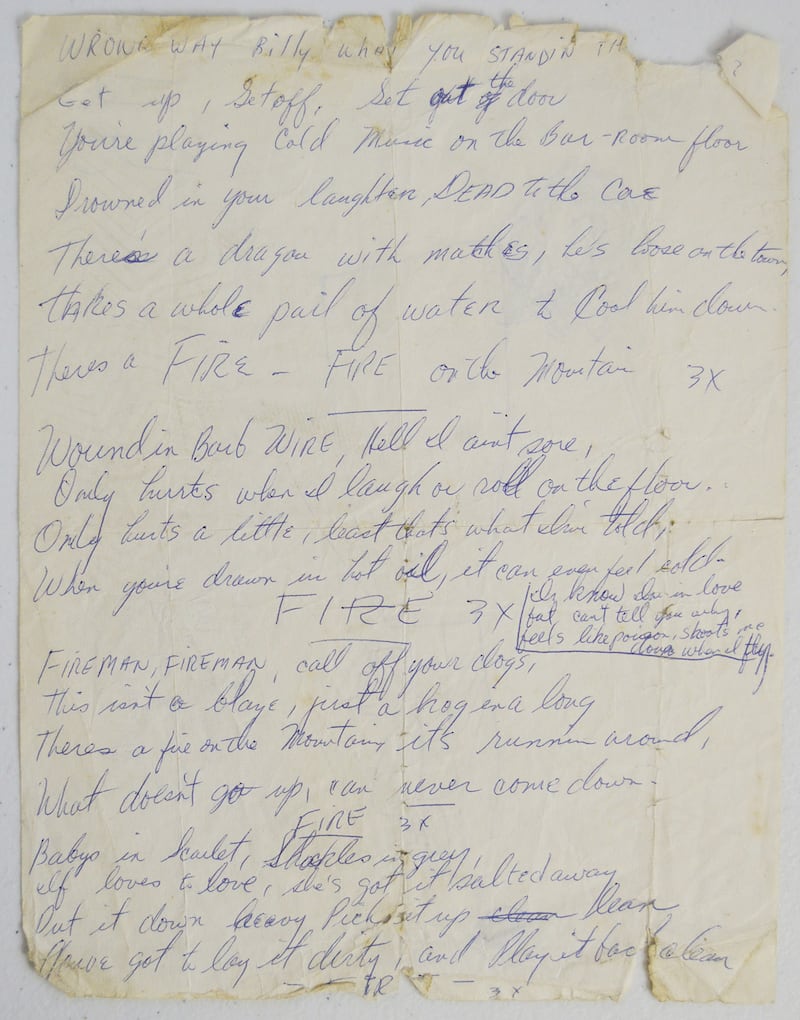 WRONG WAY Billy what you STANDIN TH ?
Get up, Get off, Get out of the door
You're playing Cold Music on the Bar-Room floor
Drowned in your laughter, DEAD to the Core
There's a dragon with matches, he's loose on the town,
tAkes a whole pail of water to Cool him down.
Theres a FIRE - FIRE on the Mountain 3X
Wound in Barb WIRE, Hell I ain't sore,
Only hurts when I laugh or roll on the floor..
Only hurts a little, least thats what I'm told,
When you're drawn in hot oil, it can even feel cold-
FIRE 3X
I know I'm in love
but can't tell you why,
feels like poison, shoots me
down when I fly.
FIREMAN, FIREMAN, call off your dogs,
this isn't a blaze, just a log
Theres a fire on the Mountain, it's runnin around,
What doesn't go up, can never come down-
FIRE 3X
Babys in Scarlet, in grey,
if loves to love, she's got it salted away
Put it down heavy Pick it up clean Clean
You've got to lay it dirty, and Play it back clean
3X